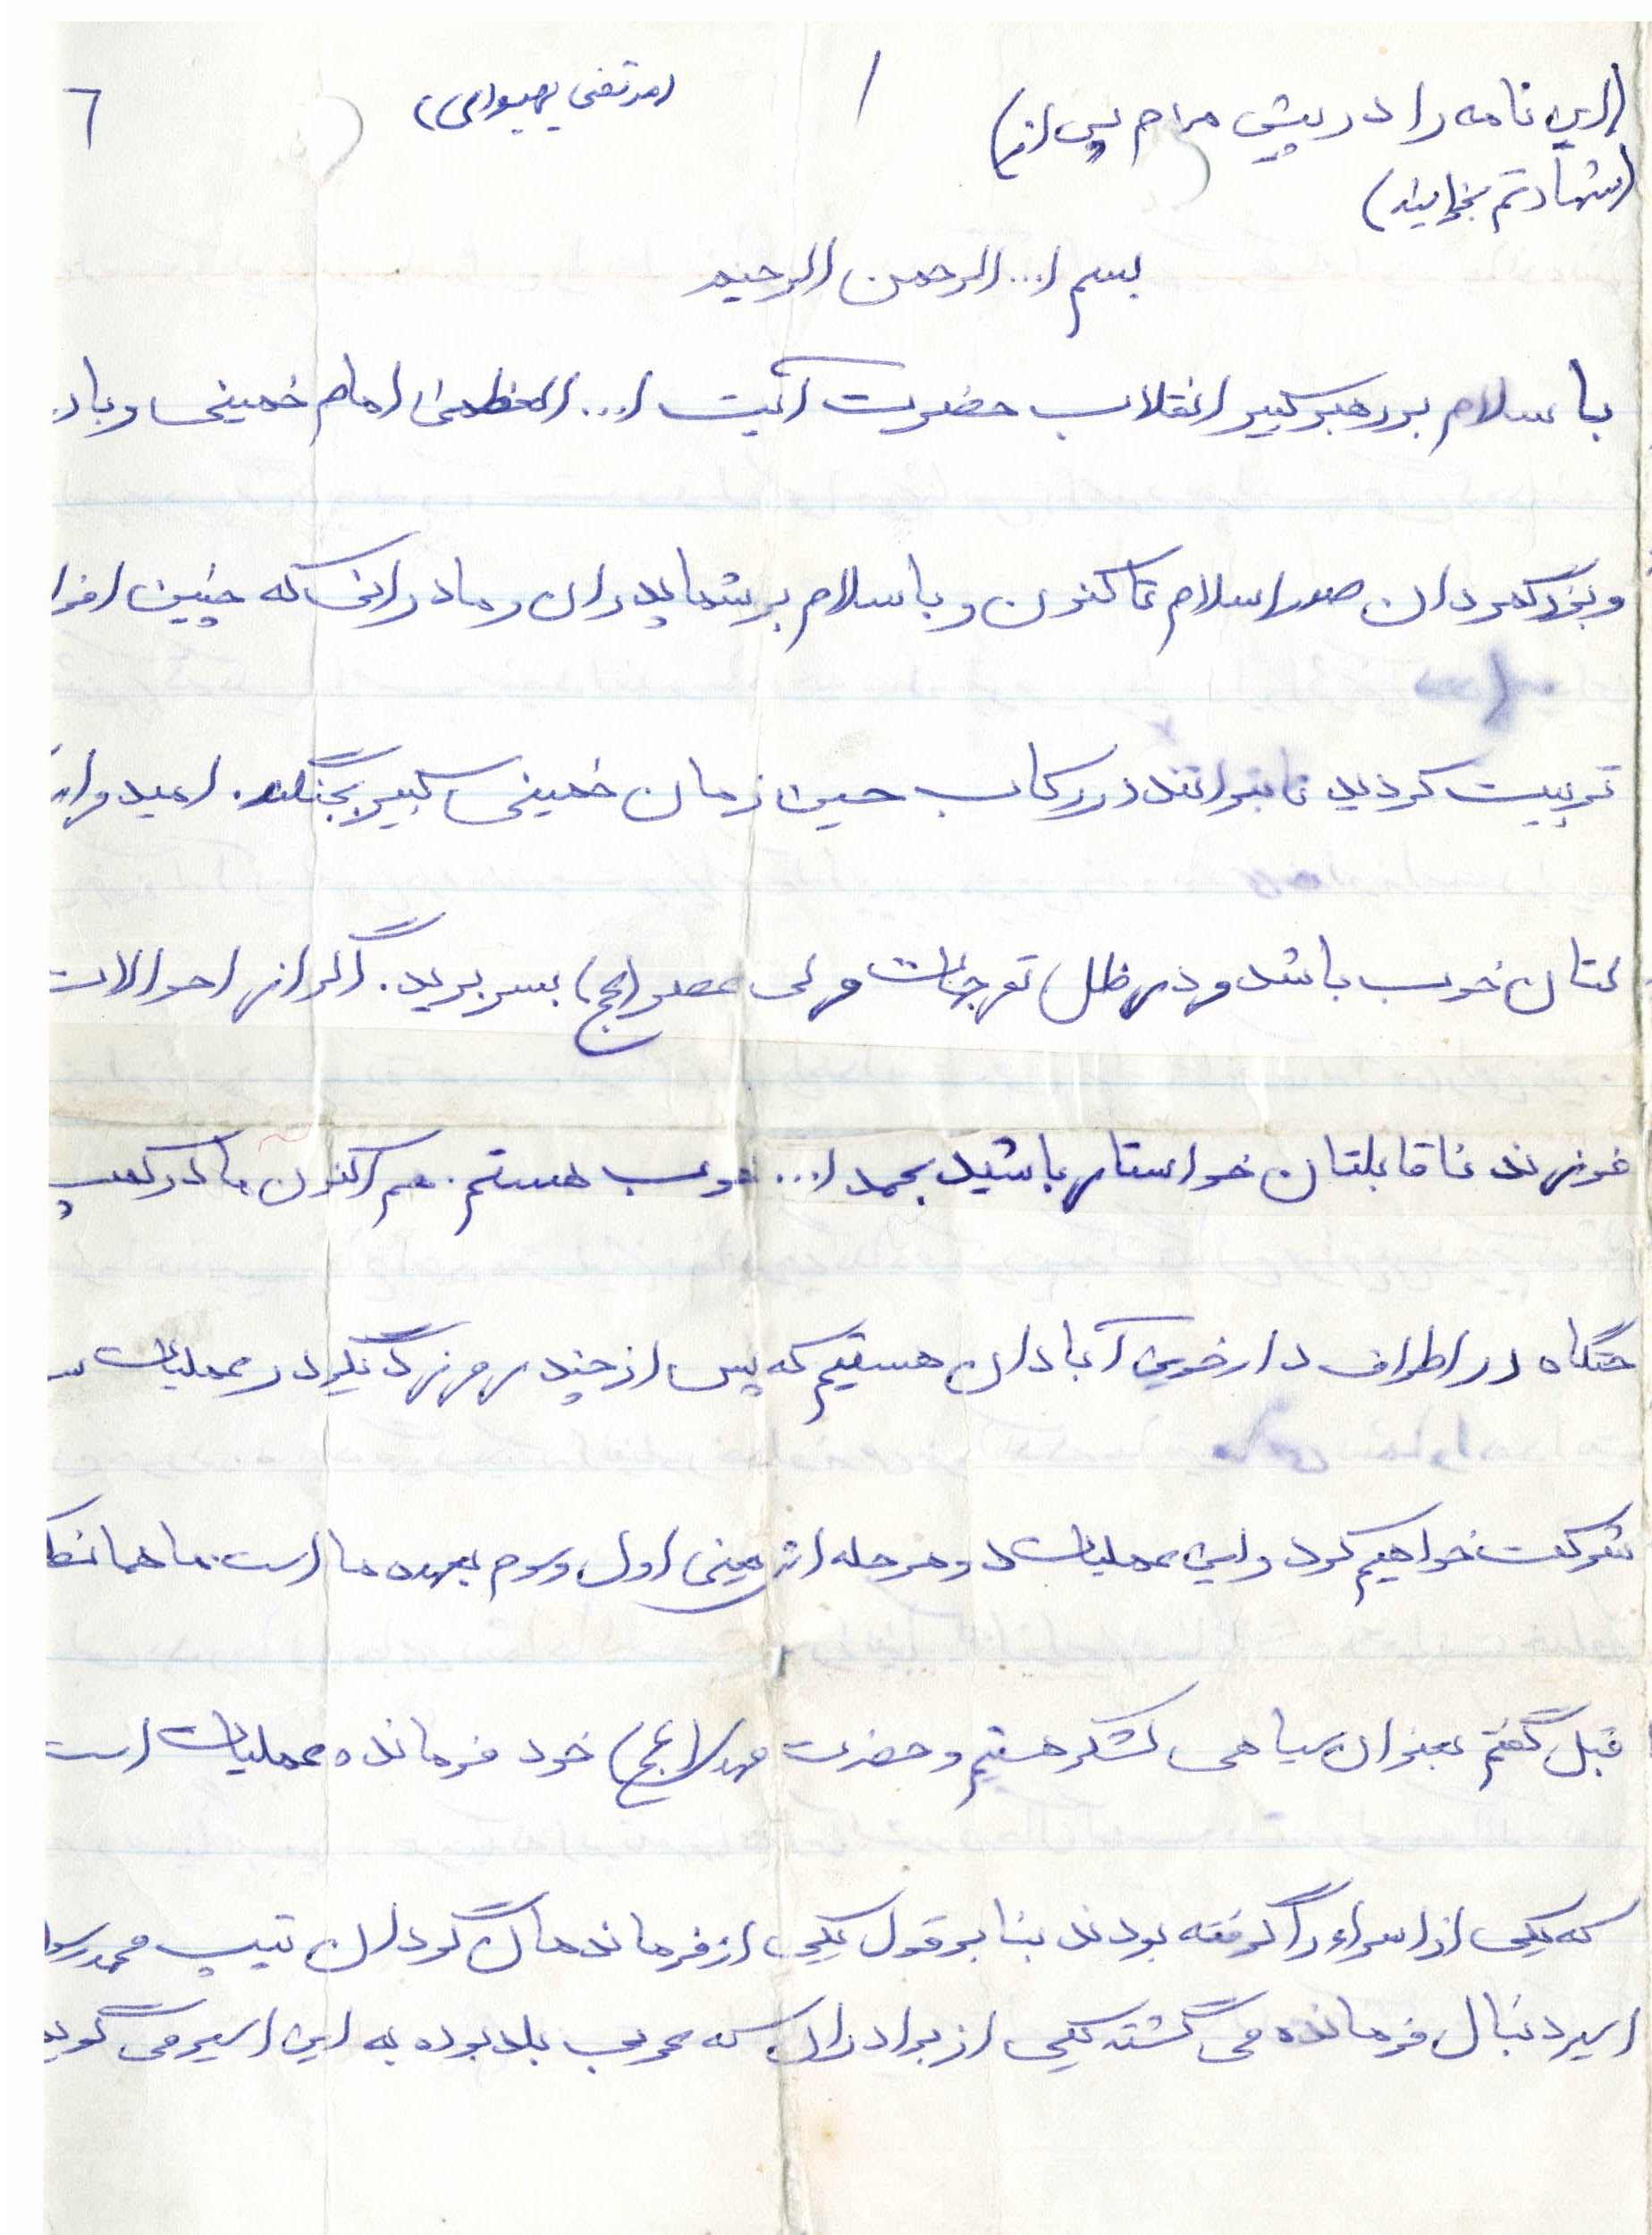 (این نامه را در پیش مردم پس از)
(شهادتم بخوانید)
(مرتضی
۱
۶
بسم ا... الرحمن الرحیم
با سلام بر رهبر کبیر انقلاب حضرت آیت ا... العظمی امام خمینی و با در
و بزرگمردان صدر اسلام تا کنون و با سلام بر شما پدران و مادرانی که چنین افرا
تربیت کردید تا بتوانند در رکاب حسین زمان خمینی کبیر بجنگند. امیدوارم
لتان خوب باشد و در ظل توجهات ولی عصر (عج) بسر برید. اگر از احوالات
فرزند ناقابلتان خواستار باشید بحمد ا... خوب هستم. هم اکنون ما در کمپ
جنگاه در اطراف دارخوین آبادان هستیم که پس از چند روز دیگر در عملیات
شرکت خواهیم کرد و این عملیات دو مرحله اش یعنی اول و سوم بعهده ما است. ما همانط
قبل گفتم بعنوان سیاهی لشکر هستیم و حضرت مهدی (عج) خود فرمانده عملیات است
که یکی از اسراء را گرفته بودند بنا بر قول یکی از فرماندهان گردان تیپ محمد رسو
اسیر دنبال فرمانده می گشته یکی از برادران که عربی بلد بوده به این اسیر می گوید